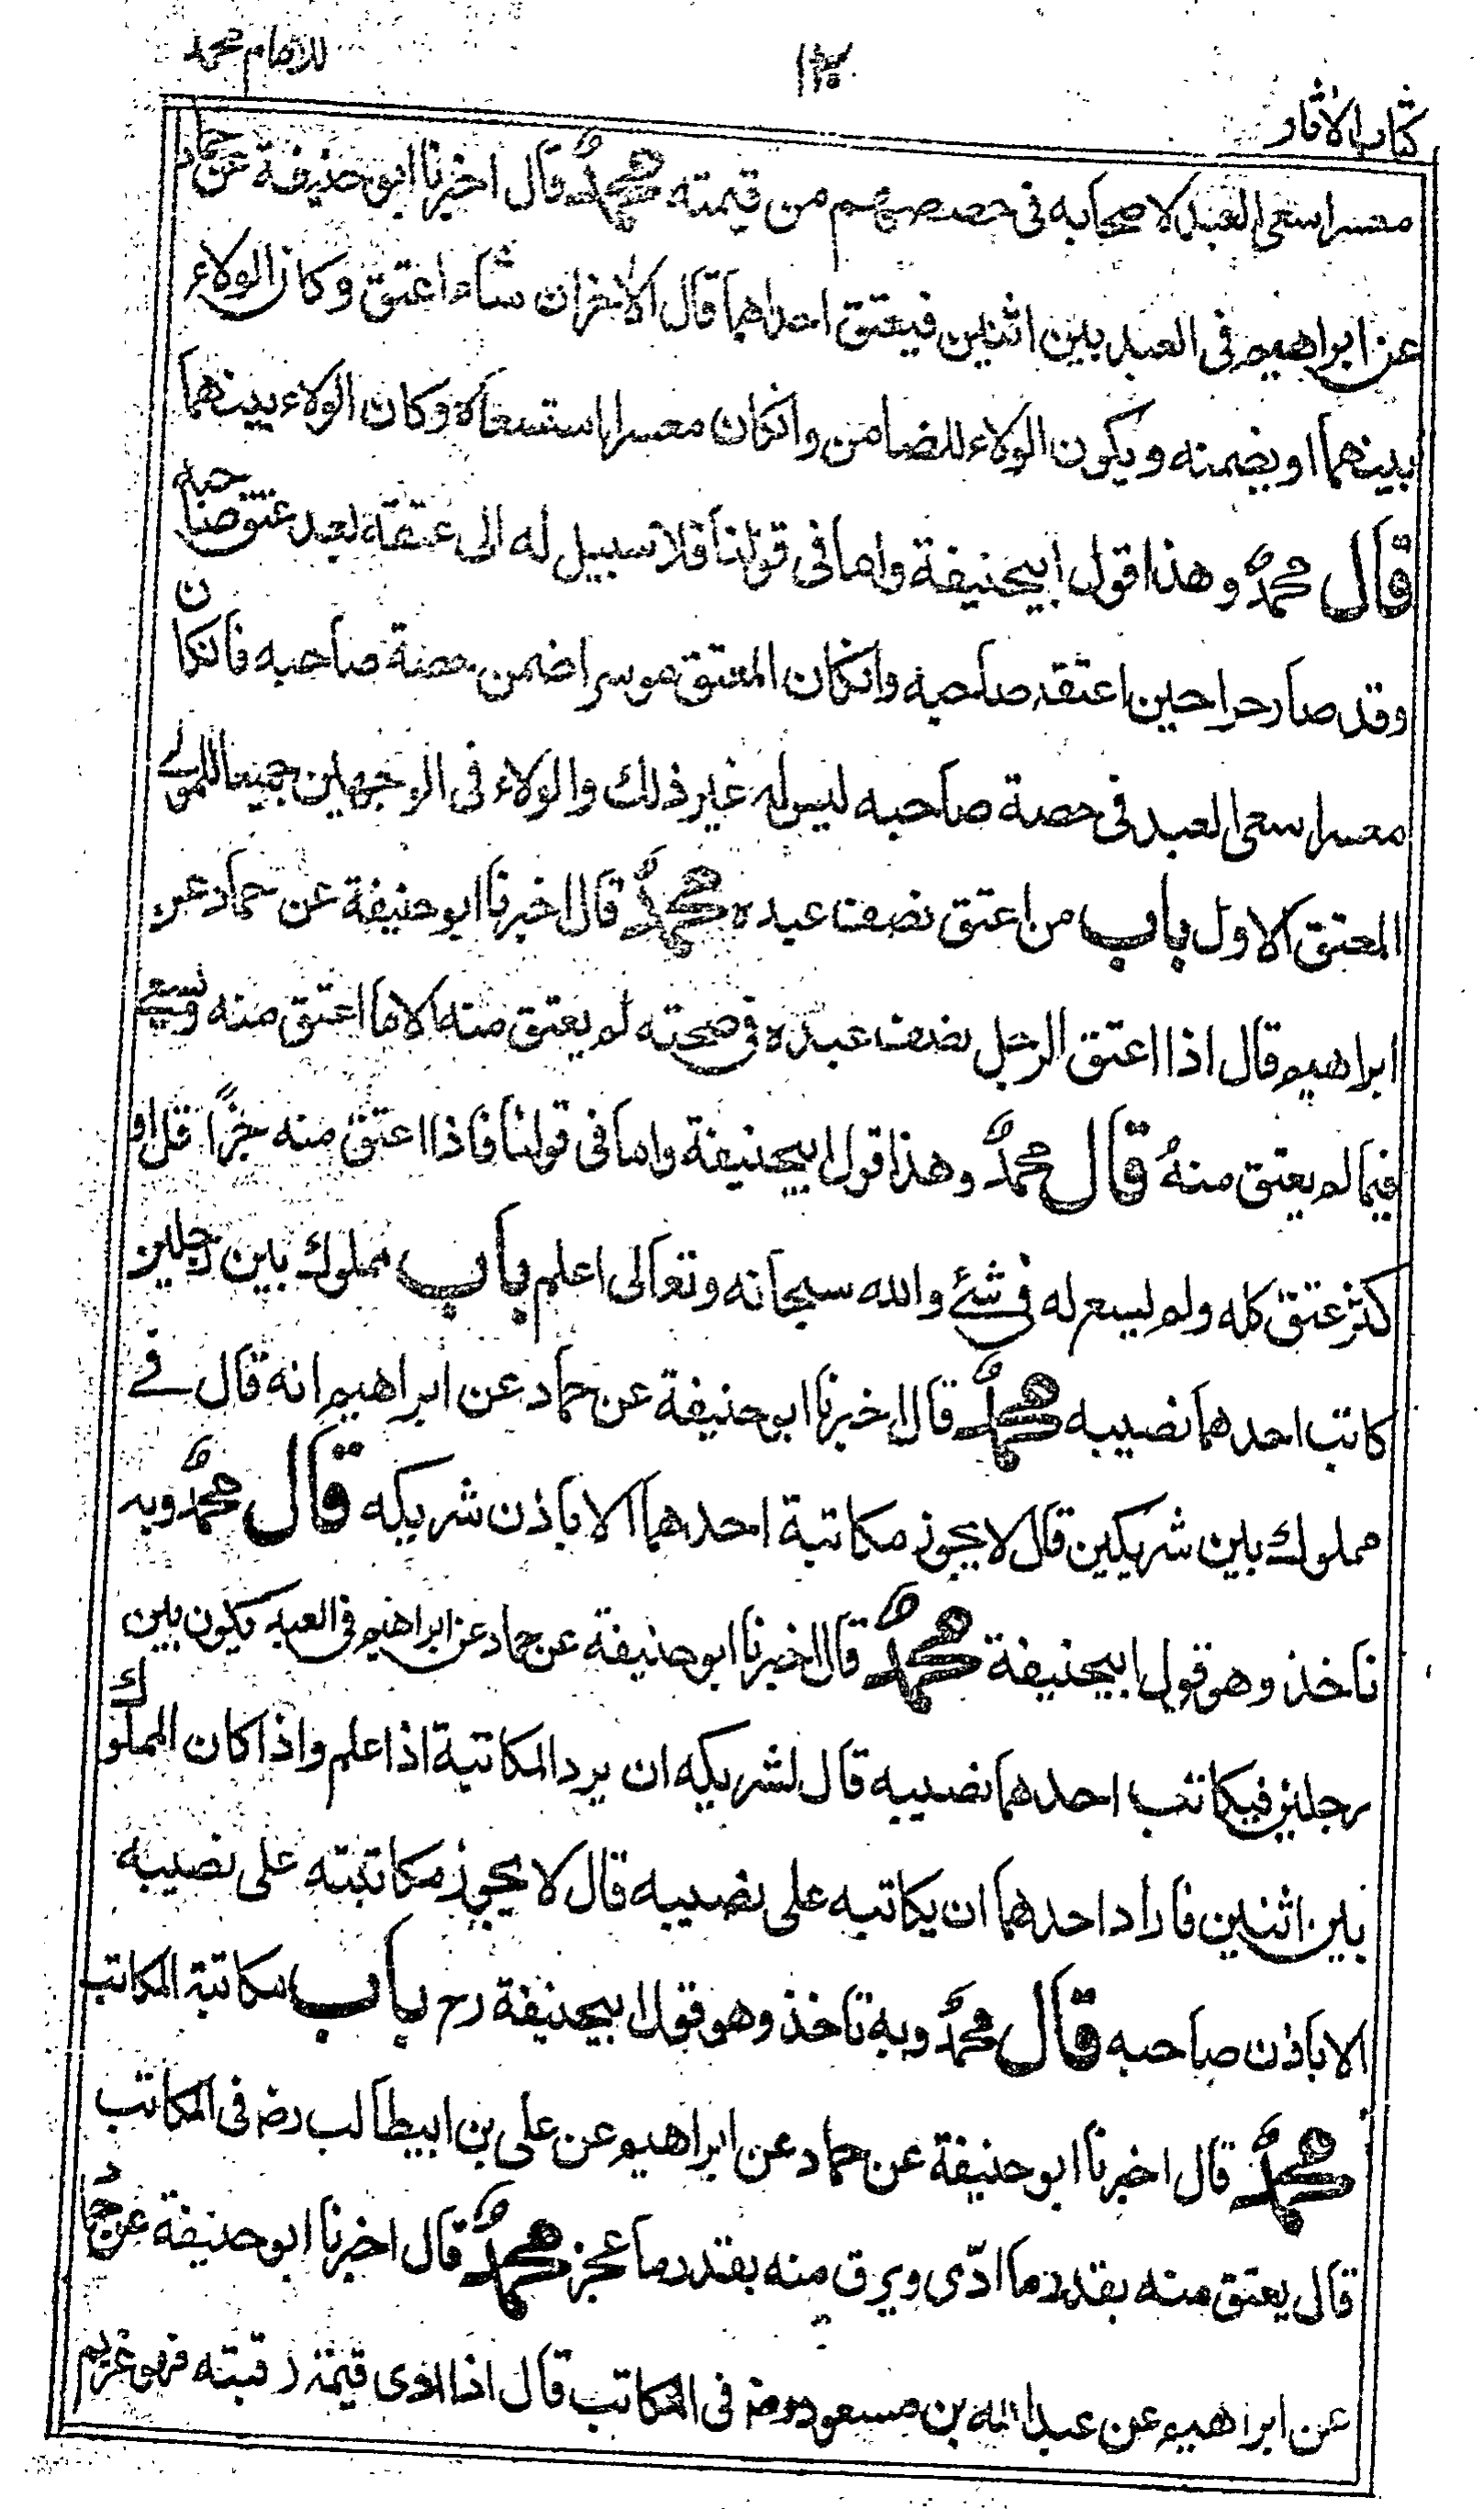 كتاب الآثار
١٢٠
للامام محمد
معسرا سعى العبد لاصحابه فى حصصهم من قيمته محمدؒ قال اخبرنا ابو حنيفة عن حماد
عن ابراهيم فى العبد بين اثنين فيعتق احدهما قال الاخر ان شاء اعتق وكان الولاء
بينهما او يضمنه ويكون الولاء للضامن وانكان معسرا استسعاه وكان الولاء بينهما
قال محمدؒ وهذا قول ابيحنيفة واما فى قولنا فلا سبيل له الى عتقه بعد عتق صاحبه
وقد صار حرا حين اعتقه صاحبه وانكان المعتق موسرا ضمن حصة صاحبه فانكان
معسرا سعى العبد فى حصة صاحبه ليس له غير ذلك والولاء فى الوجهين جميعا للمولے
المعتق الاول باب من اعتق نصف عبده محمدؒ قال اخبرنا ابو حنيفة عن حماد عن
ابراهيم قال اذا اعتق الرجل نصف عبده فى صحته لم يعتق منه الا ما اعتق منه ويسعے
فيما لم يعتق منه قال محمدؒ وهذا قول ابيحنيفة واما فى قولنا فاذا اعتق منه جزأ قل او
كثر عتق كله ولم يسع له فى شئ والله سبحانه وتعالى اعلم باب مملوك بين رجلين
كاتب احدهما نصيبه محمدؒ قال اخبرنا ابو حنيفة عن حماد عن ابراهيم انه قال فے
مملوك بين شريكين قال لا يجوز مكاتبة احدهما الا باذن شريكه قال محمدؒ وبه
ناخذ وهو قول ابيحنيفة محمدؒ قال اخبرنا ابو حنيفة عن حماد عن ابراهيم فى العبد يكون بين
رجلين فيكاتب احدهما نصيبه قال لشريكه ان يرد المكاتبة اذا علم واذا كان المملوك
بين اثنين فاراد احدهما ان يكاتبه على نصيبه قال لا يجوز مكاتبته على نصيبه
الا باذن صاحبه قال محمدؒ وبه ناخذ وهو قول ابيحنيفة رح باب مكاتبة المكاتب
محمدؒ قال اخبرنا ابو حنيفة عن حماد عن ابراهيم عن على بن ابيطالب رضہ فى المكاتب
قال يعتق منه بقدر ما ادّى ويرق منه بقدر ما عجز محمدؒ قال اخبرنا ابو حنيفة عن حماد
عن ابراهيم عن عبد الله بن مسعود رضہ فى المكاتب قال اذا ادى قيمة رقبته فهو غريم